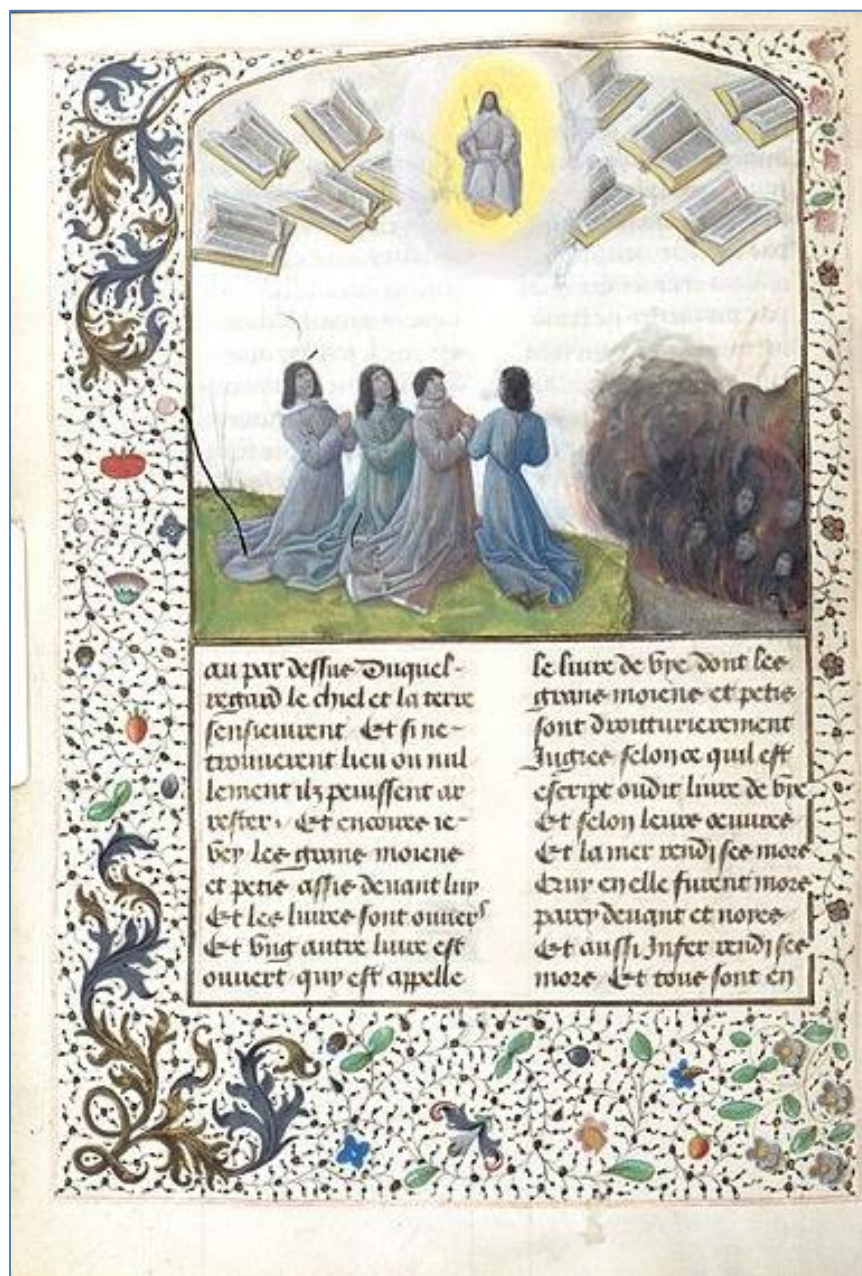 au par dessus Duquel-
regard le chiel et la terre
sensieuuent Et si ne-
trouuerent lieu ou nul
lement ilz peuissent ar
rester, Et encoure ie-
vey les grans moiens
et petis assis deuant luy
Et les liures sont ouuers
Et vng autre liure est
ouuert quy est appelle
le liure de vye dont les
grans moiens et petis
sont droitturierement
Jugies selon ce quil est
escript oudit liure de vye
Et selon leurs œuures
Et la mer rendi ses mors
Quy en elle furent mors
parcy deuant et noyes
Et aussi Infer rendi ses
mors Et tous sont en